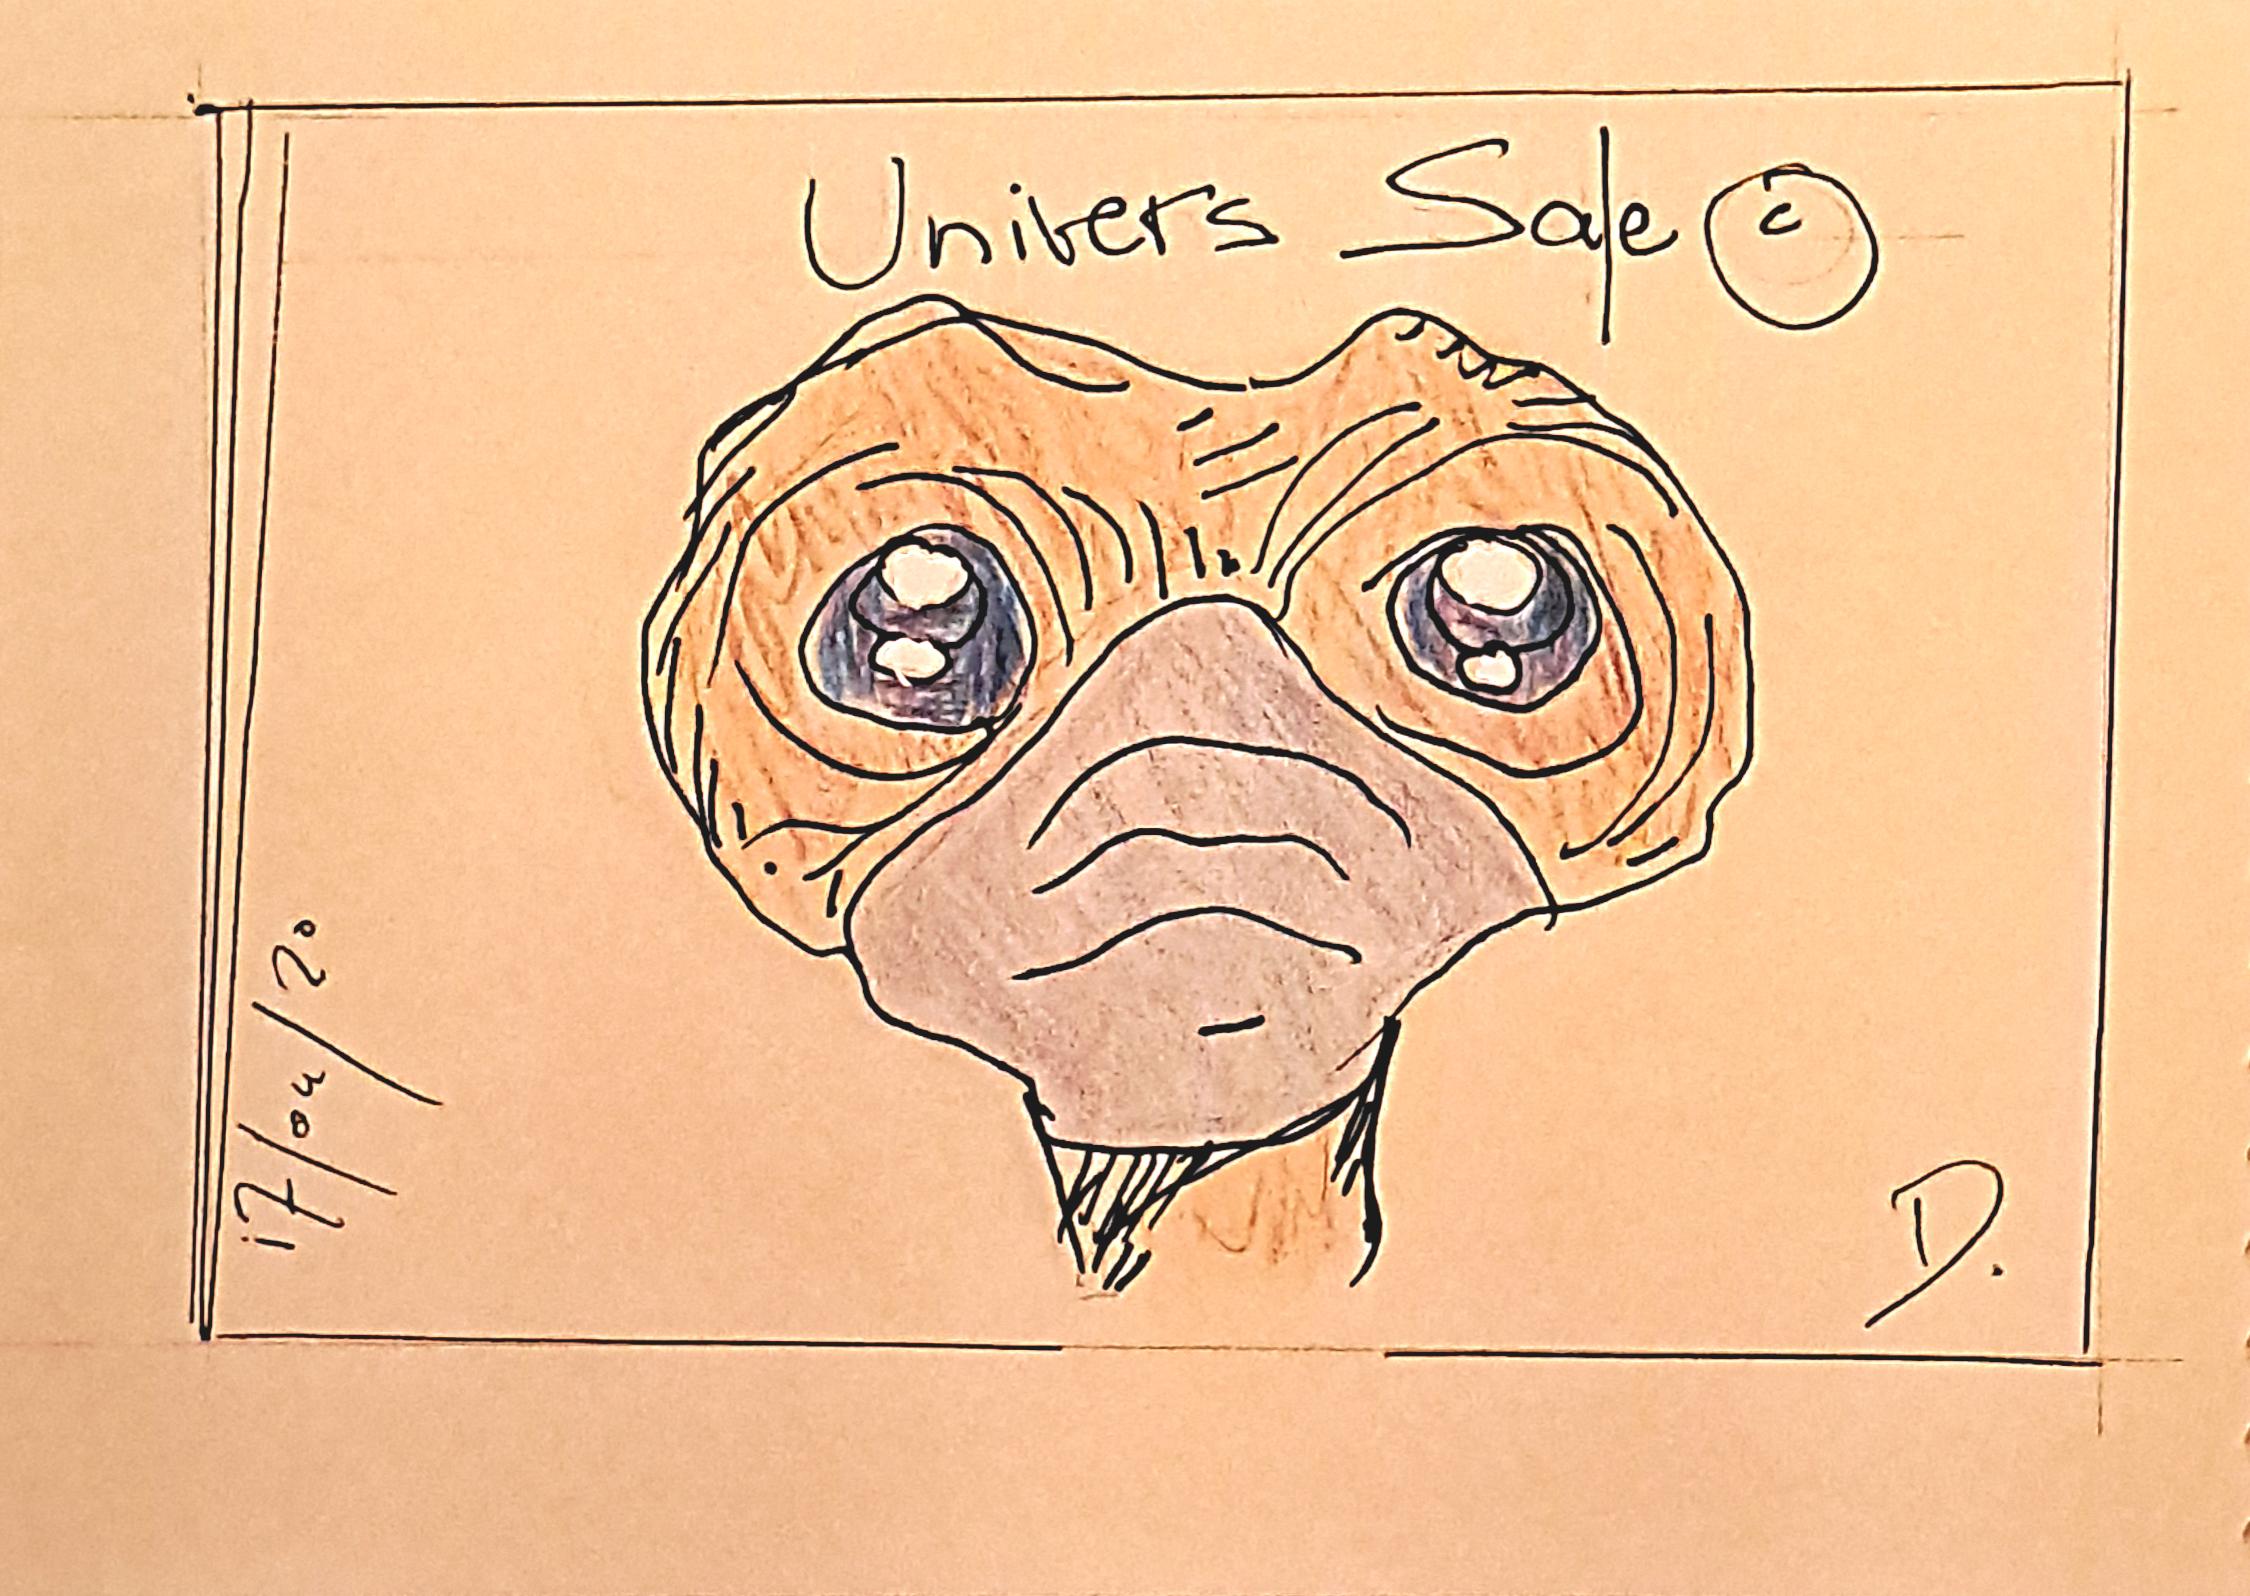 Univers Sale
17/04/20
D.